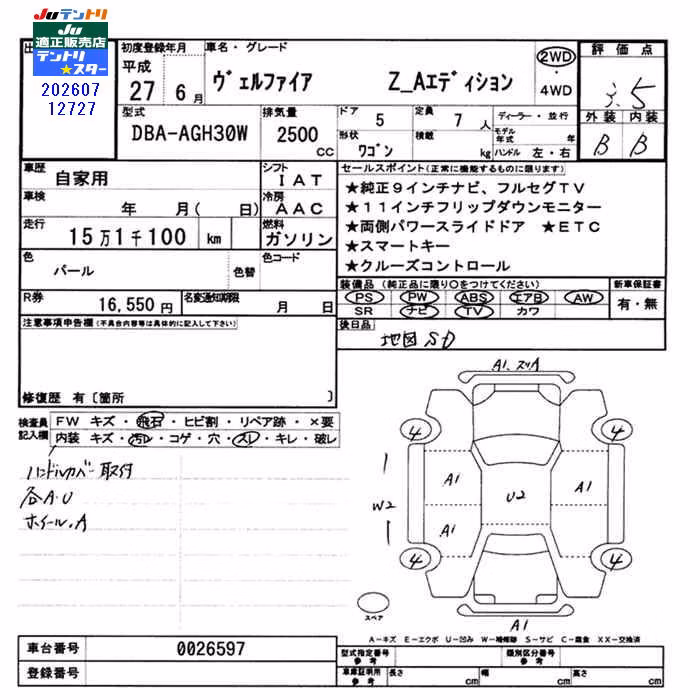 Juテントリ
Ju
適正販売店
テントリ
★スター
202607
12727
初度登録年月
平成
27 6月
車名・グレード
ヴェルファイア Z_Aエディション
2WD
4WD
評価点
3.5
外装 内装
B B
型式
DBA-AGH30W
排気量
2500 cc
ドア
5
定員
7 人
形状
ワゴン
積載
kg
ディーラー・並行
モデル年式 年
ハンドル 左・右
車歴
自家用
シフト
IAT
車検
年 月( 日)
冷房
AAC
走行
15万1千100 km
燃料
ガソリン
色
パール
色替
色コード
R券
16,550円
名変通知期限
月 日
セールスポイント(正常に機能するものに限ります)
★純正9インチナビ、フルセグTV
★11インチフリップダウンモニター
★両側パワースライドドア ★ETC
★スマートキー
★クルーズコントロール
装備品(純正品に限り○をつけてください)
PS PW ABS エアB AW
SR ナビ TV カワ
新車保証書
有・無
後日品
地図SD
注意事項申告欄(不具合内容等は具体的に記入して下さい)
修復歴 有〔箇所 〕
検査員
記入欄
FW キズ・飛石・ヒビ割・リペア跡・×要
内装 キズ・汚レ・コゲ・穴・スレ・キレ・破レ
ハンドルカバー取付
各A.U
ホイール.A
A1.スリA
4 4
A1 A1
W2
U2
A1
4 4
A1
スペア
A-キズ E-エクボ U-凹み W-補修跡 S-サビ C-腐食 XX-交換済
車台番号
0026597
登録番号
型式指定番号
参考
類別区分番号
参考
車庫証明用
参考
長さ cm
幅 cm
高さ cm